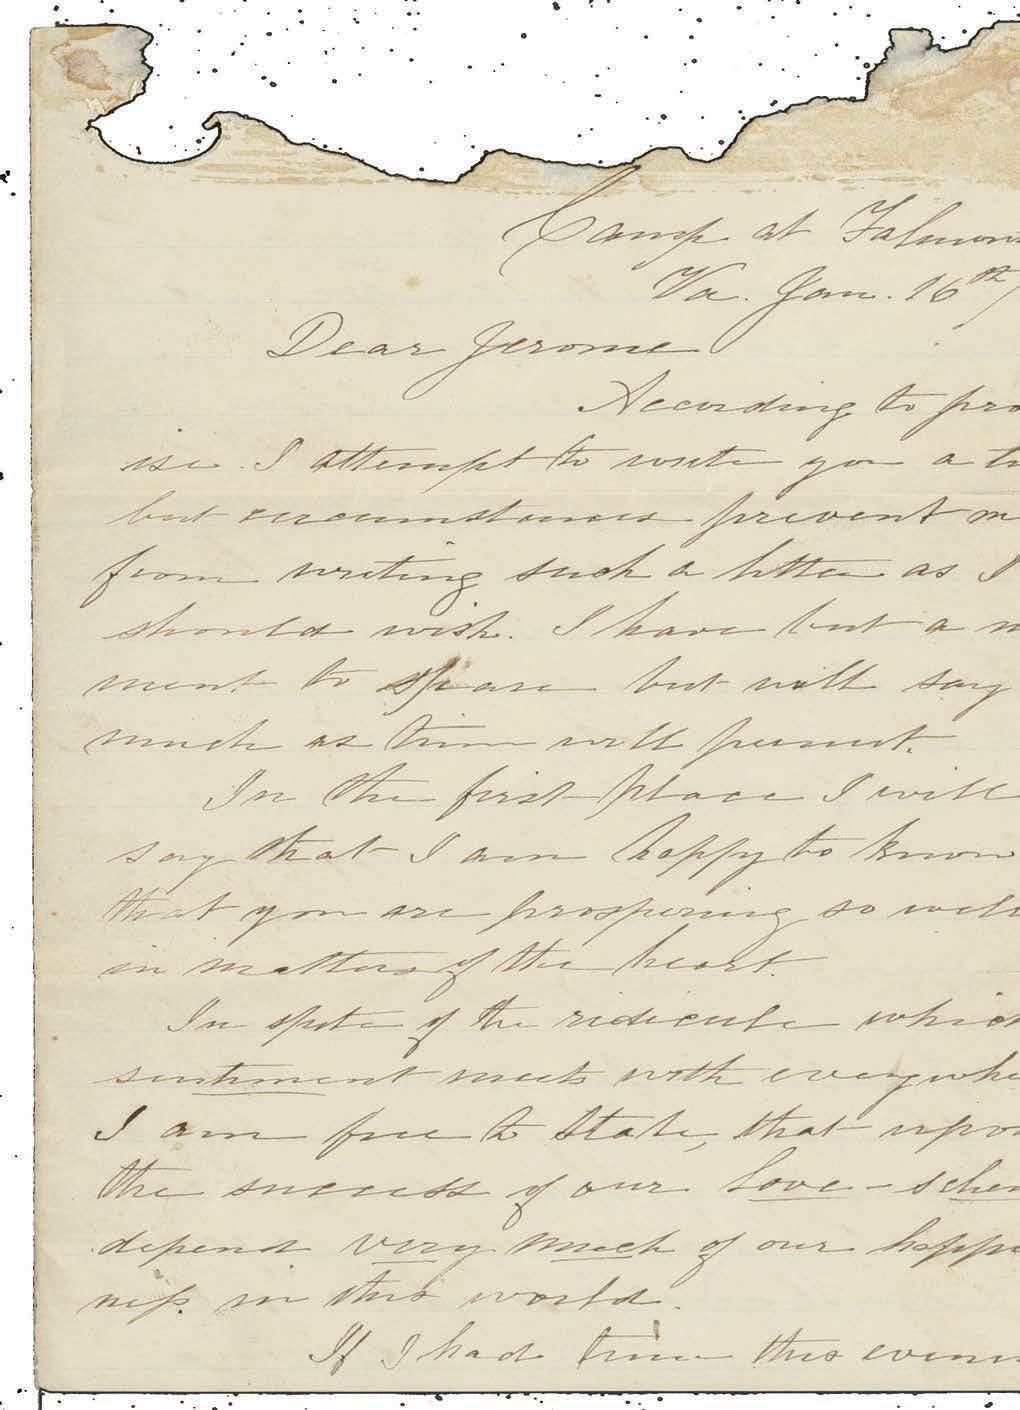 Camp at Falmou
Va. Jan. 16th/
Dear Jerome
According to pro
ise. I attempt to write you a
but circumstances prevent m
from writing such a letter as I
should wish. I have but a m
ment to spare but will say
much as time will permit.
In the first place I will
say that I am happy to know
that you are prospering so well
in matters of the heart.
In spite of the ridicule which
sentiment meets with everywhe
I am free to state, that upon
the success of our love-schem
depend very much of our happi
ness in this world.
If I had time this eveni